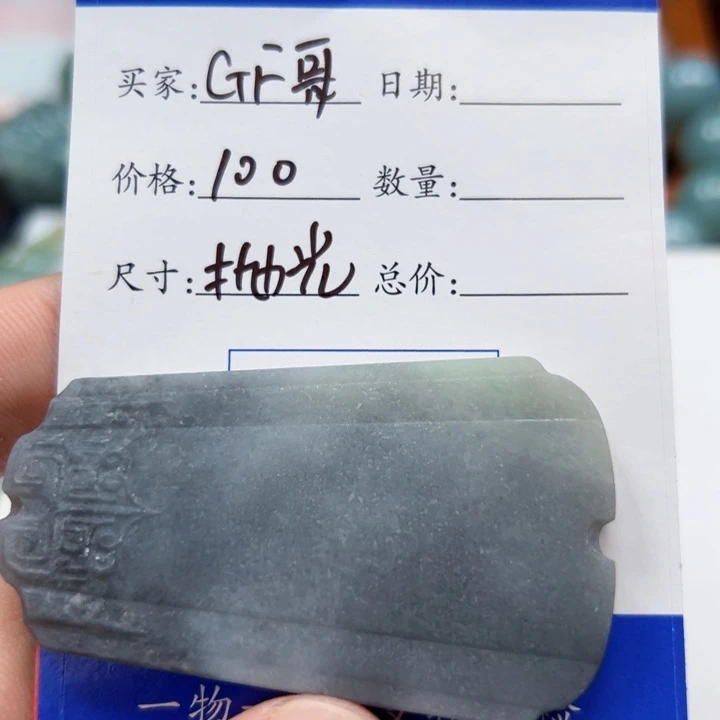 买家: GF哥 日期:
价格: 100 数量:
尺寸: 抛光 总价:
一物一